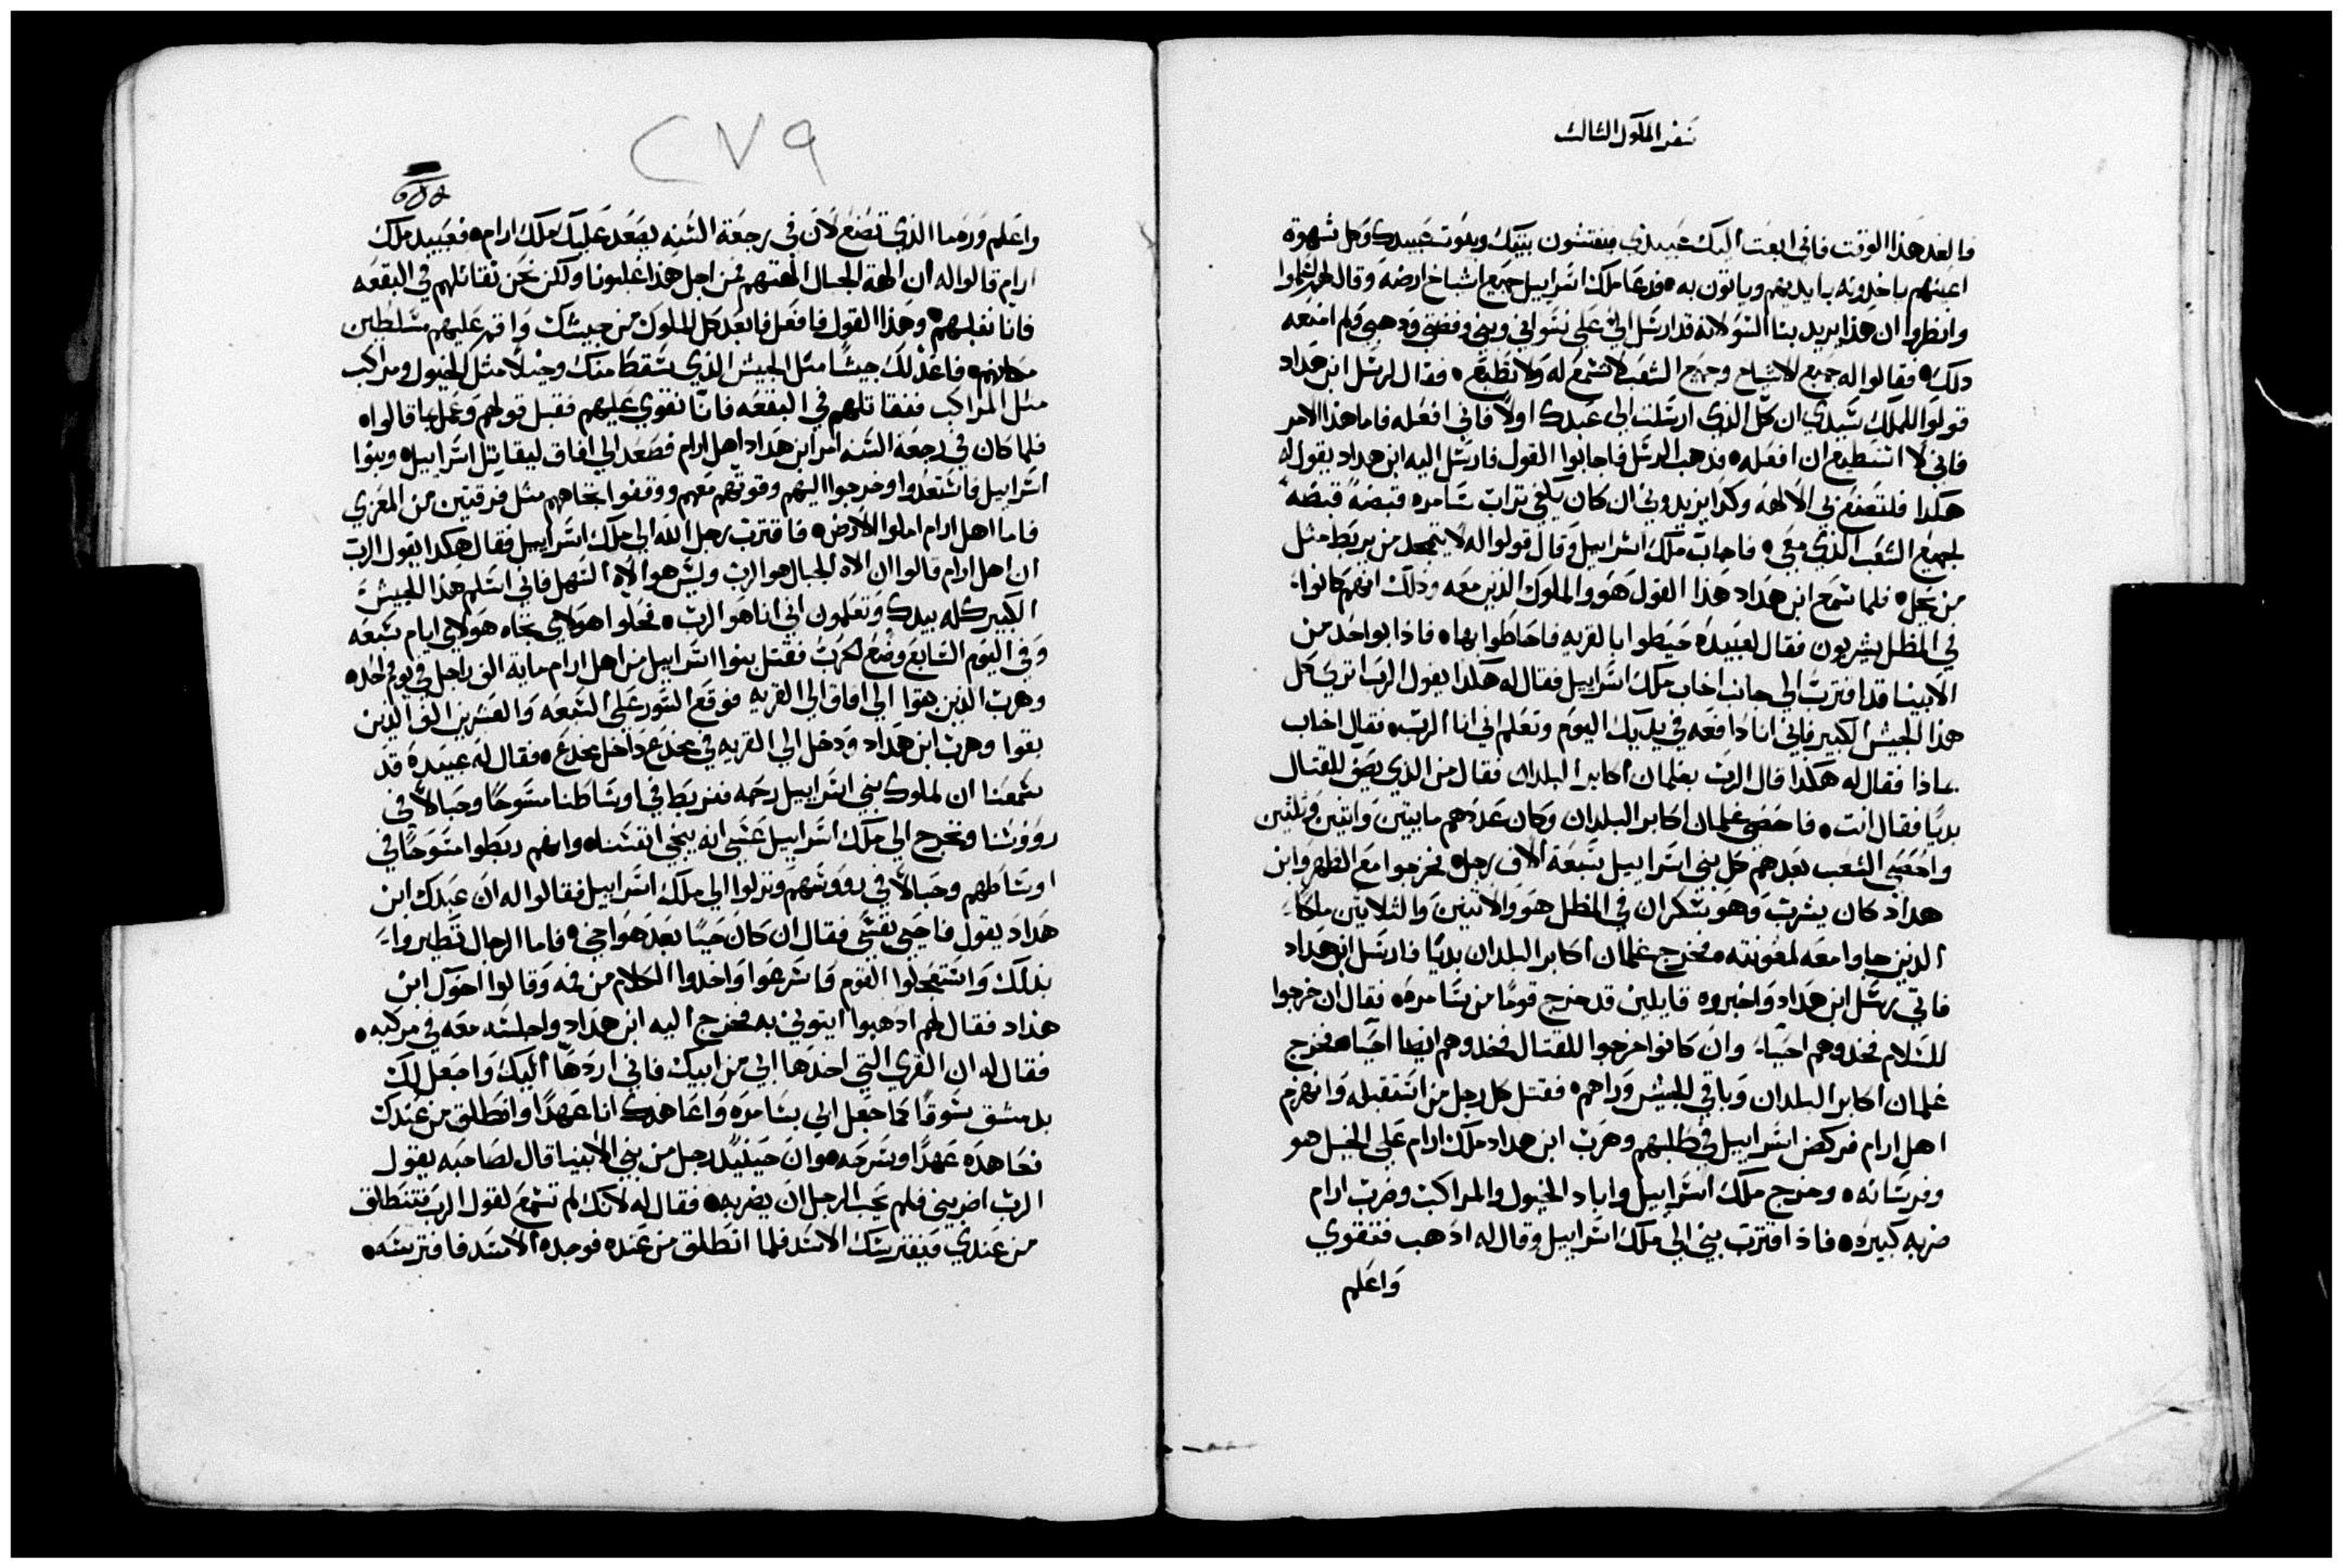 سفر الملوك الثالث
فالغد هذا الوقت فاني ابعت اليك عبيدي فيفتشون بيتك وبيوت عبيدك وكل شهوة
اعينهم ياخدونه بايديهم وياتون به فدعا ملك اسراييل جميع اشياخ ارضه وقال لهم اعلموا
وانظروا ان هذا يريد بنا السو لانه قد ارسل الي على نسواني وبني وفضتي ودهبي فلم امنعه
دلك فقالوا له جميع الاشياخ وجميع الشعب لا تسمع له ولا تطيع فقال لرسل ابن هداد
قولوا للملك سيدي ان كل الذي ارسلت الى عبدك اولا فاني افعله فاما هذا الامر
فاني لا استطيع ان افعله فدهب الرسل فاجابوا القول فارسل اليه ابن هداد يقول له
هكدا فلتصنع بي الالهه وكدا يزيدوني ان كان يكفي تراب سامره قبضة قبضه
لجميع الشعب الذي معي فاجاب ملك اسراييل وقال قولوا له لا يتمجد من يربط مثل
من يحل فلما سمع ابن هداد هذا القول هو والملوك الذين معه ودلك انهم كانوا
في المظل يشربون فقال لعبيده حيطوا بالقريه فاحاطوا بها فاذا بواحد من
الانبيا قد اقترب الي جانب اخاب ملك اسراييل فقال له هكدا يقول الرب اتري كل
هذا الجيش الكبير فاني انا دافعه في يديك اليوم وتعلم اني انا الرب فقال اخاب
بماذا فقال له هكدا قال الرب بغلمان اكابر البلدان فقال من الذي يصف للقتال
بديا فقال انت فاحصى غلمان اكابر البلدان وكان عددهم مايتين واتنين وتلثين
واحصى الشعب بعدهم كل بني اسراييل سبعة الاف رجل فخرجوا مع الظهر وابن
هداد كان يشرب وهو سكران في المظل هو والاتنين والتلاتين ملكا
الدين جاوا معه لمعونته فخرج غلمان اكابر البلدان بديا فارسل ابن هداد
فاتي رسل ابن هداد واخبروه قايلين قد خرج قوما من سامره فقال ان خرجوا
للسلام فخدوهم احيا وان كانوا خرجوا للقتال فخدوهم ايضا احيا فخرج
غلمان اكابر البلدان وباقي الجيش وراهم فقتل كل رجل من استقبله وانهزم
اهل ارام فركض اسراييل في طلبهم وهرب ابن هداد ملك ارام على الخيل هو
وفرسانه وخرج ملك اسراييل واباد الخيول والمراكب وضرب ارام
ضربه كبيره فاذا اقترب بني الي ملك اسراييل وقال له ادهب فتقوي
واعلم
٢٧٩
واعلم ورد ما الذي تصنع لان في رجعة السنه يصعد عليك ملك ارام فعبيد ملك
ارام قالوا له ان الهة الجبال الهتهم فمن اجل هذا غلبونا ولكن نحن نقاتلهم في البقعه
فانا نغلبهم وهذا القول فافعل فابعد كل الملوك من جيشك واقم عليهم مسلطين
مكانهم فاعد لك جيشا مثل الجيش الذي سقط منك وخيلا مثل الخيول ومراكب
مثل المراكب فنقاتلهم في البقعه فانا نقوي عليهم فقبل قولهم وعمل بما قالوا
فلما كان في رجعة السنه امر ابن هداد اهل ارام فصعد الي افاق ليقاتل اسراييل وبنوا
اسراييل فاستعدوا وخرجوا اليهم وقوتهم معهم ووقفوا تجاههم مثل فرقتين من المعزي
فاما اهل ارام املوا الارض فاقترب رجل الله الي ملك اسراييل فقال هكدا يقول الرب
ان اهل ارام قالوا ان الاه الجبال هو الرب وليس هو الاه السهل فاني اسلم هذا الجيش
الكبير كله بيدك وتعلمون اني انا هو الرب فحلوا هولاي تجاه هولاي ايام سبعه
وفي اليوم السابع وضع الحرب فقتل بنوا اسراييل من اهل ارام ماية الف راجل في يوم واحد
وهرب الذين بقوا الي افاق الي القريه فوقع السور علي السبعه والعشرين الف الذين
بقوا وهرب ابن هداد ودخل الي القريه في مخدع داخل مخدع فقال له عبيده قد
سمعنا ان لملوك بني اسراييل رحمه فنربط في اوساطنا مسوحا وحبالا في
رووسنا ونخرج الي ملك اسراييل عسي انه ينجي انفسنا وانهم ربطوا مسوحا في
اوساطهم وحبالا في رووسهم ونزلوا الي ملك اسراييل فقالوا له ان عبدك ابن
هداد يقول فاحيى نفسي فقال ان كان حيا بعد هو اخي فاما الرجال تطيروا
بدلك واستعجلوا القوم فاسرعوا واخدوا الكلام من فمه وقالوا اخوك ابن
هداد فقال لهم ادهبوا ايتوني به فخرج اليه ابن هداد واجلسه معه في مركبه
فقال له ان القري التي اخدها ابي من ابيك فاني اردها اليك واجعل لك
بدمشق سوقا كما جعل ابي بسامره واعاهدك انا عهدا وانطلق من عندك
فعاهده عهدا وسرحه وان حينيد رجل من بني الانبيا قال لصاحبه يقول
الرب اضربني فلم يحب الرجل ان يضربه فقال له لانك لم تسمع لقول الرب فتنطلق
من عندي فيفترسك الاسد فلما انطلق من عنده فوجده الاسد فافترسه